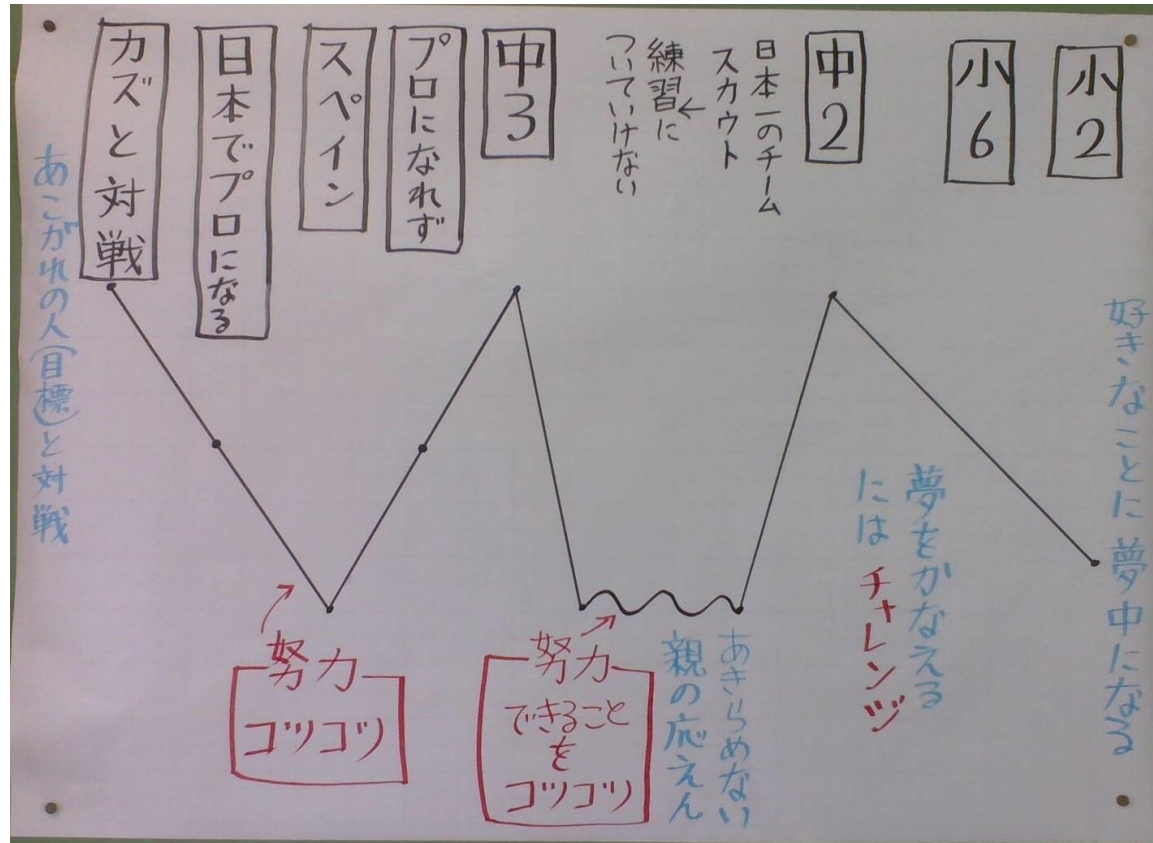 小2
小6
中2
日本一のチーム
スカウト
↓
練習に
ついていけない
中3
プロになれず
スペイン
日本でプロになる
カズと対戦
好きなことに夢中になる
夢をかなえる
には チャレンジ
あきらめない
親の応えん
努力
できること
を
コツコツ
努力
コツコツ
あこがれの人(目標)と対戦